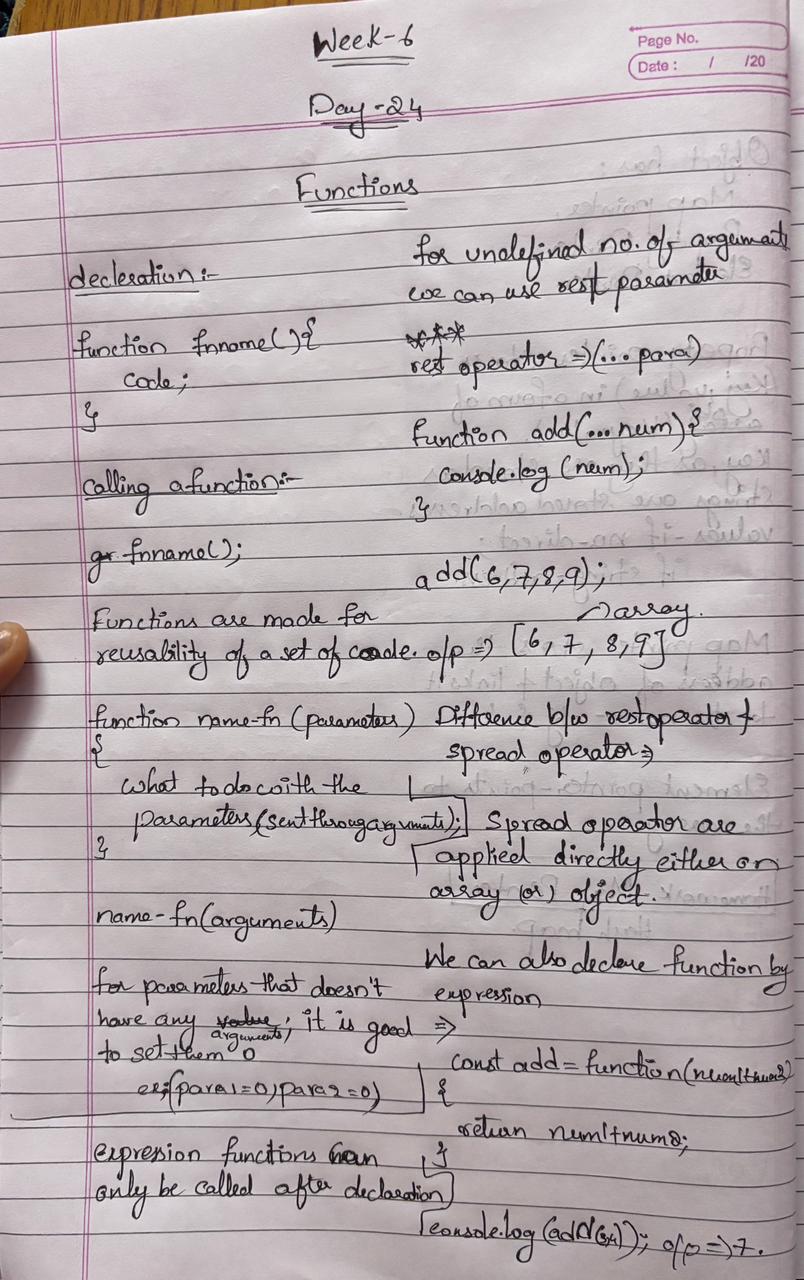 Week-6
Page No.
Date : / /20
Day-24
Functions
decleration:-
function fnname(){
code;
}
calling a function:-
fnname();
Functions are made for
reusability of a set of code.
function name-fn (parameters)
{
what to do with the
parameters (sent throug arguments);
}
name-fn(arguments)
for parameters that doesn't
have any value arguments, it is good
to set them 0
ex:(para1=0, para2=0)
expression functions can
only be called after declaration
for undefined no. of arguments
we can use rest parameter
***
rest operator => (... para)
function add(... num){
console.log (num);
}
add(6,7,8,9);
→ array.
o/p => [6, 7, 8, 9]
Diffrence b/w rest operator &
spread operator =>
Spread operator are
applied directly either on
array (or) object.
We can also declare function by
expression
=>
const add = function(
{
return num1+num2;
}
console.log (add(3,4)); o/p => 7.